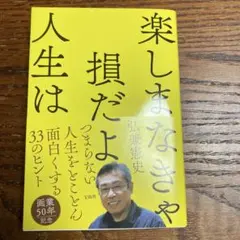 楽しまなきゃ
損だよ
人生は
弘兼憲史
つまらない
人生をとことん
面白くする
33のヒント
宝島社
画業
50周年
記念